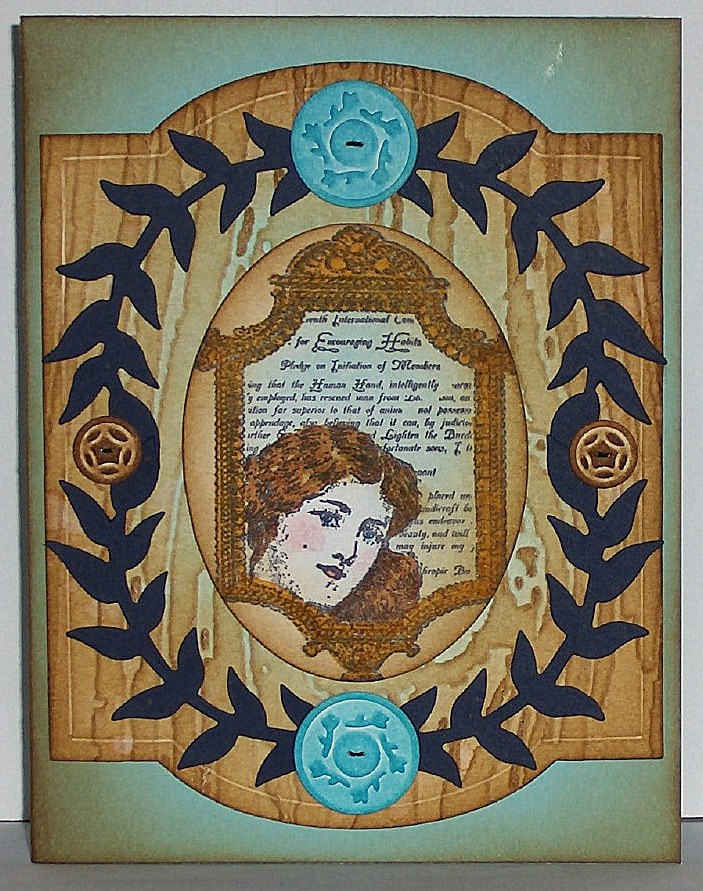 International Com
for Encouraging Habits
Pledge on Initiation of Members
ing that the Human Hand, intelligently
y employed, has rescued man from
ution far superior to that of anim not possess
appendage, also believing that it can, by judicio
urther and Lighten the Burde
ing fortunate sons, I
placed
andicraft be
endeavor
beauty, and will
may injure my
thropic Bu